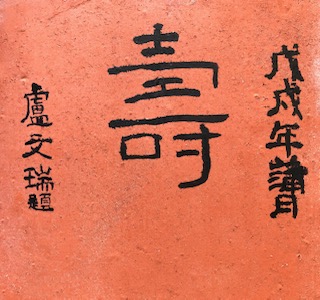 戊戌年蒲月
壽
盧文瑞題